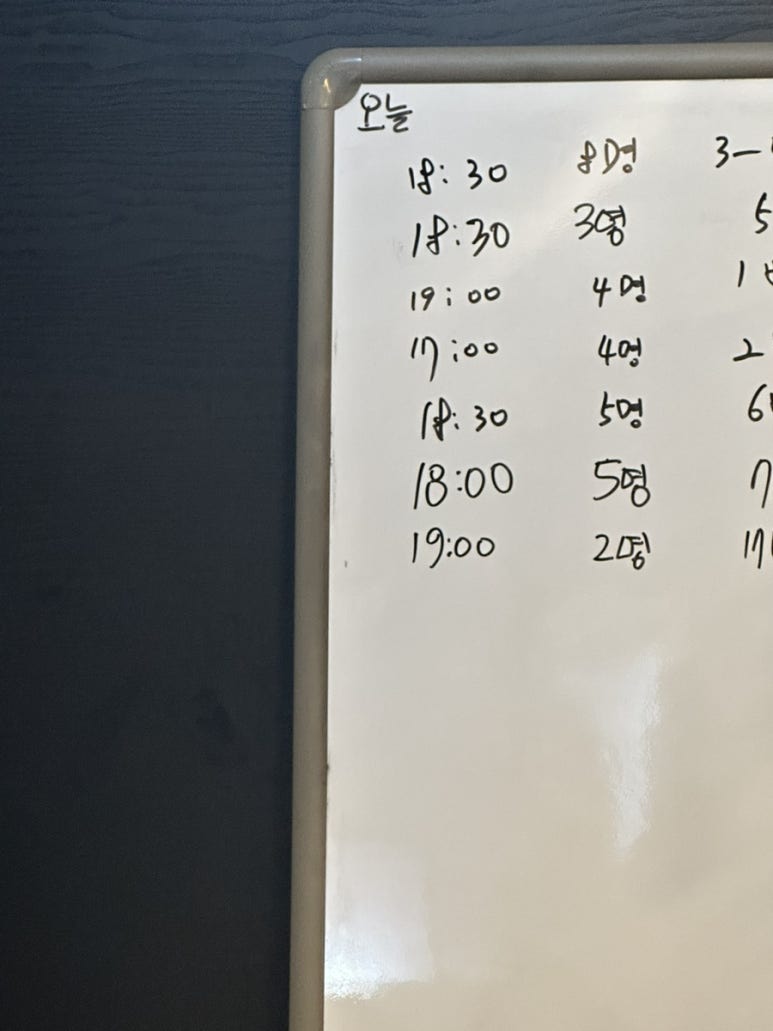 오늘
18:30 8명 3-
18:30 3명 5
19:00 4명 1
17:00 4명 2
18:30 5명 6
18:00 5명 7
19:00 2명 17